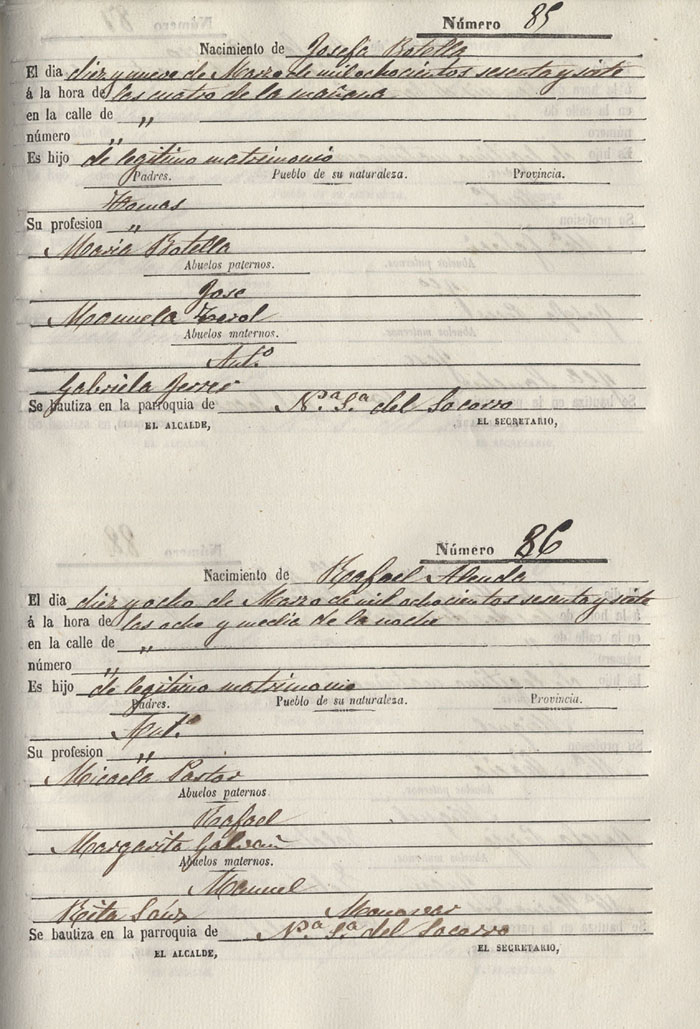 Número 85
Nacimiento de Josefa Botella
El dia diez y nueve de Marzo de mil ochocientos sesenta y siete
á la hora de las cuatro de la mañana
en la calle de "
número "
Es hijo de legitimo matrimonio
Padres. Pueblo de su naturaleza. Provincia.
Tomas
Su profesion "
Maria Botella
Abuelos paternos.
Jose
Manuela
Abuelos maternos.
Antº
Gabriela
Se bautiza en la parroquia de Nª Sª del Socorro
EL ALCALDE, EL SECRETARIO,
Número 86
Nacimiento de Rafael Alenda
El dia diez y ocho de Marzo de mil ochocientos sesenta y siete
á la hora de las ocho y media de la noche
en la calle de "
número "
Es hijo de legitimo matrimonio
Padres. Pueblo de su naturaleza. Provincia.
Antº
Su profesion "
Micaela Pastor
Abuelos paternos
Rafael
Margarita Galvañ
Abuelos maternos.
Manuel
Rita Sanz Monovar
Se bautiza en la parroquia de Nª Sª del Socorro
EL ALCALDE, EL SECRETARIO,